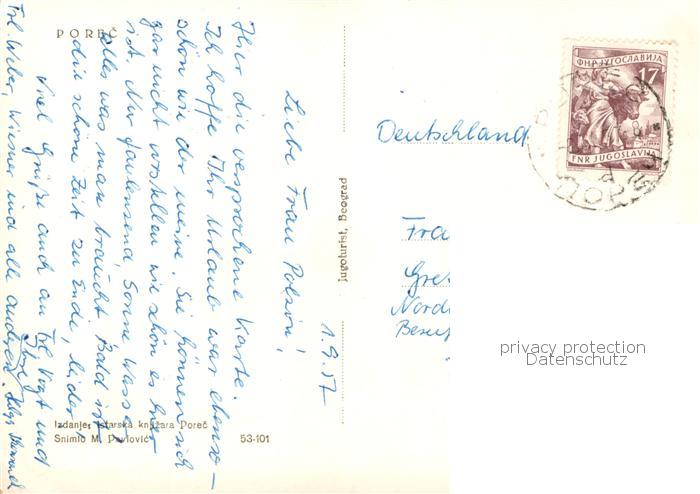 POREČ
1.9.57
Liebe Frau Polzin!
Hier die versprochene Karte.
Ich hoffe Ihr Urlaub war ebenso
schön wie der meine. Sie können sich
gar nicht vorstellen wie schön es hier
ist. Nur faulenzend, Sonne Wasser
alles was man braucht. Bald ist
die schöne Zeit zu Ende, leider.
Viel Grüße auch an Frl. Vogt und
Frl. Weber, Wiesner und alle anderen.
Ihre
Izdanje: Istarska knjižara Poreč
Snimio M. Pavlović
53-101
Jugoturist, Beograd
ФНР ЈУГОСЛАВИЈА
17
FNR JUGOSLAVIJA
Deutschland
Fra
Gre
Nord
privacy protection
Datenschutz